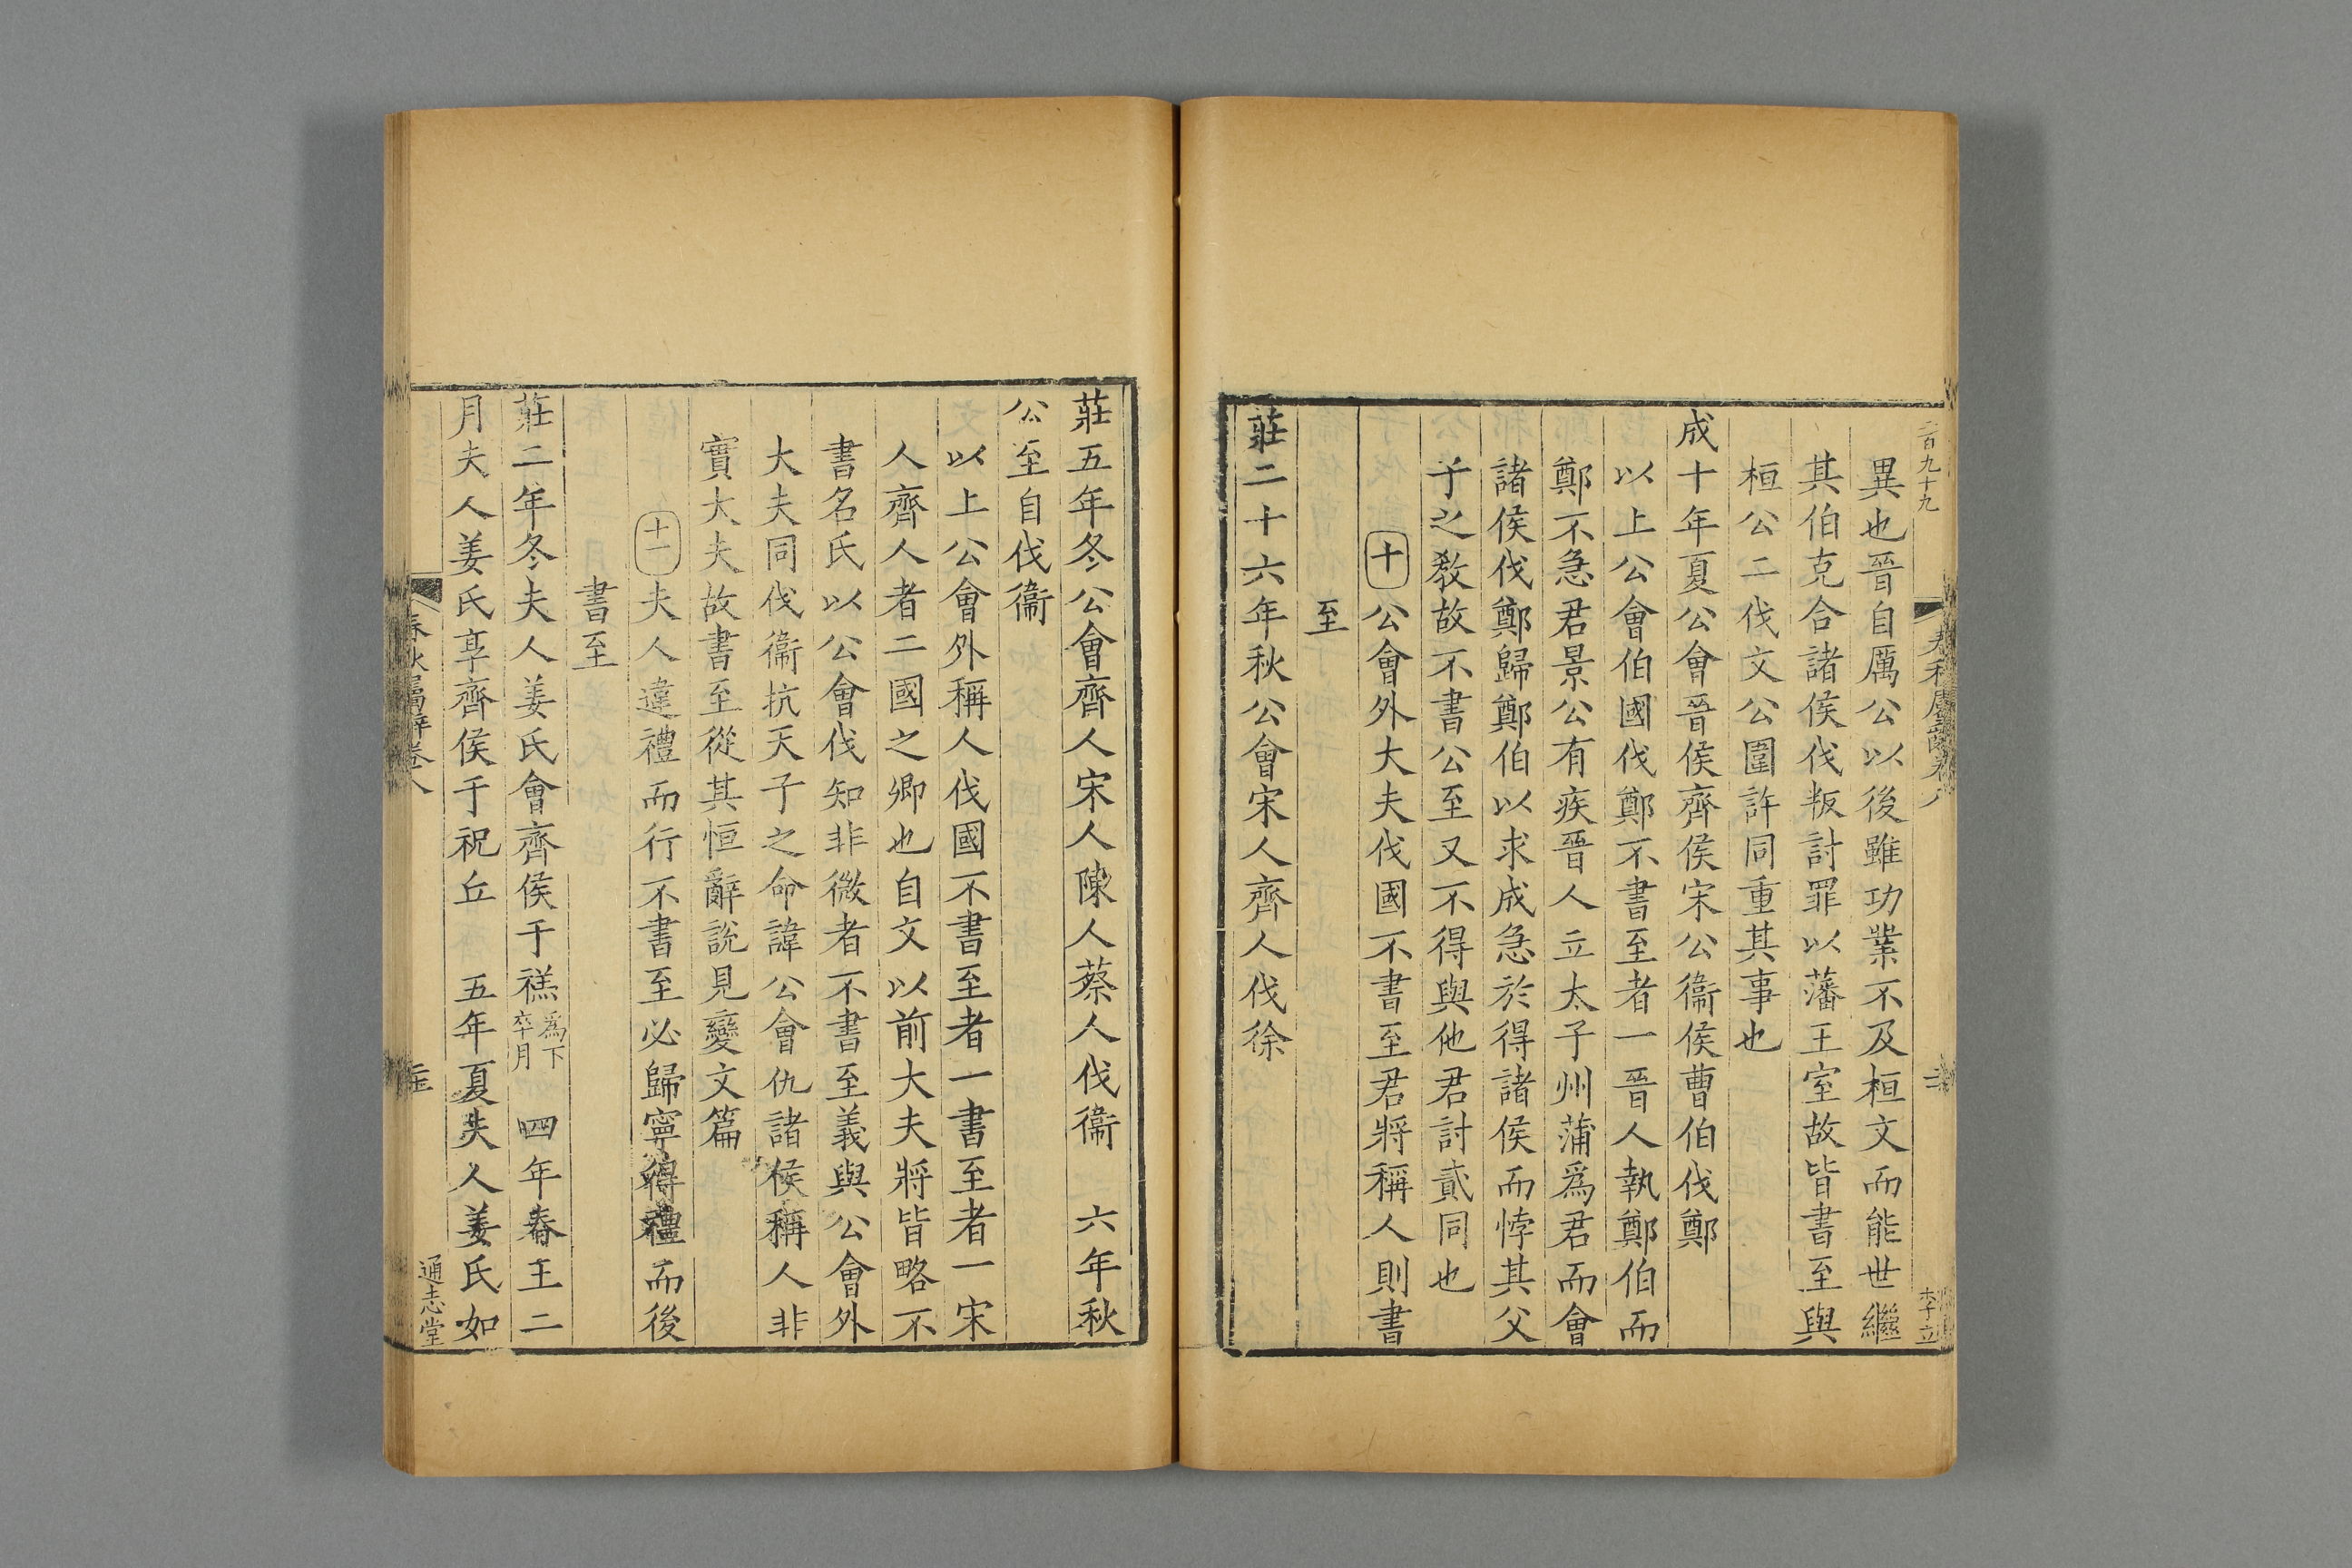 異也晉自厲公以後雖功業不及桓文而能世繼
其伯克合諸侯伐叛討罪以藩王室故皆書至與
桓公二伐文公圍許同重其事也
成十年夏公會晉侯齊侯宋公衞侯曹伯伐鄭
以上公會伯國伐鄭不書至者一晉人執鄭伯而
鄭不急君景公有疾晉人立太子州蒲爲君而會
諸侯伐鄭歸鄭伯以求成急於得諸侯而悖其父
子之敎故不書公至又不得與他君討貳同也
十公會外大夫伐國不書至君將稱人則書
至
莊二十六年秋公會宋人齊人伐徐
莊五年冬公會齊人宋人陳人蔡人伐衞 六年秋
公至自伐衞
以上公會外稱人伐國不書至者一書至者一宋
人齊人者二國之卿也自文以前大夫將皆略不
書名氏以公會伐知非微者不書至義與公會外
大夫同伐衞抗天子之命諱公會仇諸侯稱人非
實大夫故書至從其恒辭說見變文篇
十一夫人違禮而行不書至必歸寧得禮而後
書至
莊二年冬夫人姜氏會齊侯于禚爲下卒月 四年春王二
月夫人姜氏享齊侯于祝丘 五年夏夫人姜氏如
春秋屬辭卷八
通志堂